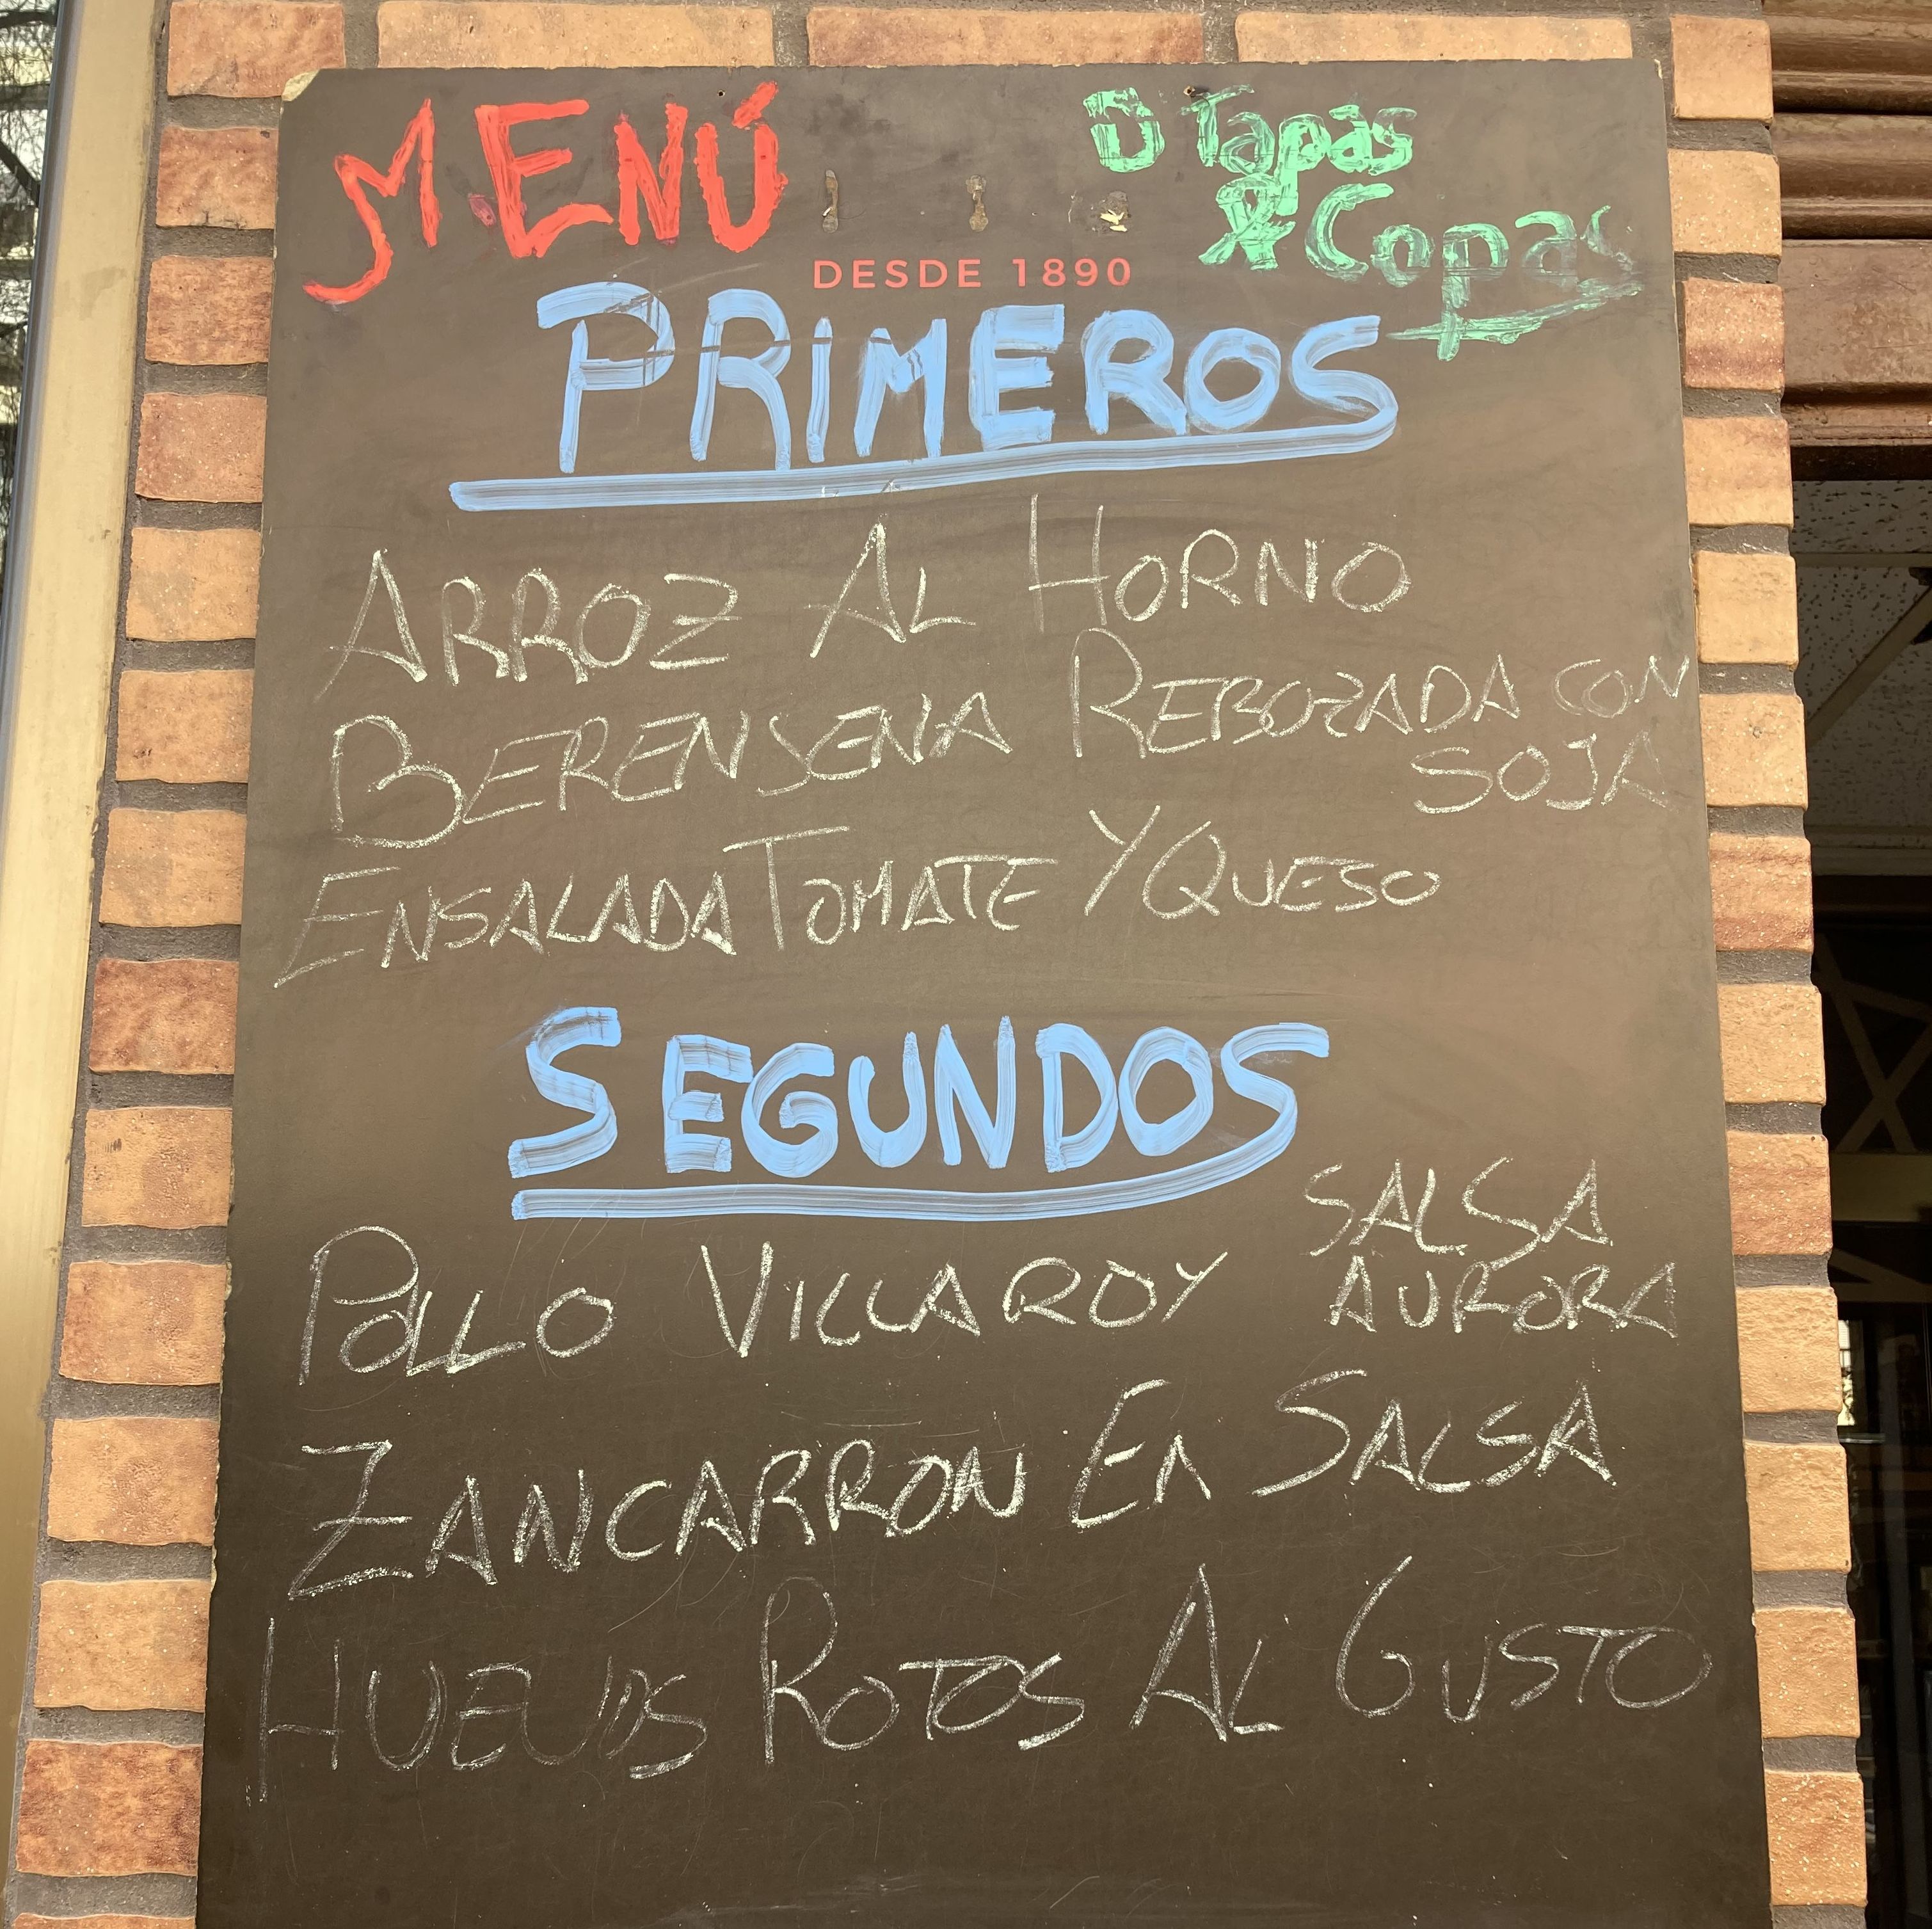 MENÚ
D Tapas
& Copas
DESDE 1890
PRIMEROS
ARROZ AL HORNO
BERENSENA REBOZADA CON
SOJA
ENSALADA TOMATE Y QUESO
SEGUNDOS
POLLO VILLAROY SALSA
AURORA
ZANCARRON EN SALSA
HUEVOS ROTOS AL GUSTO